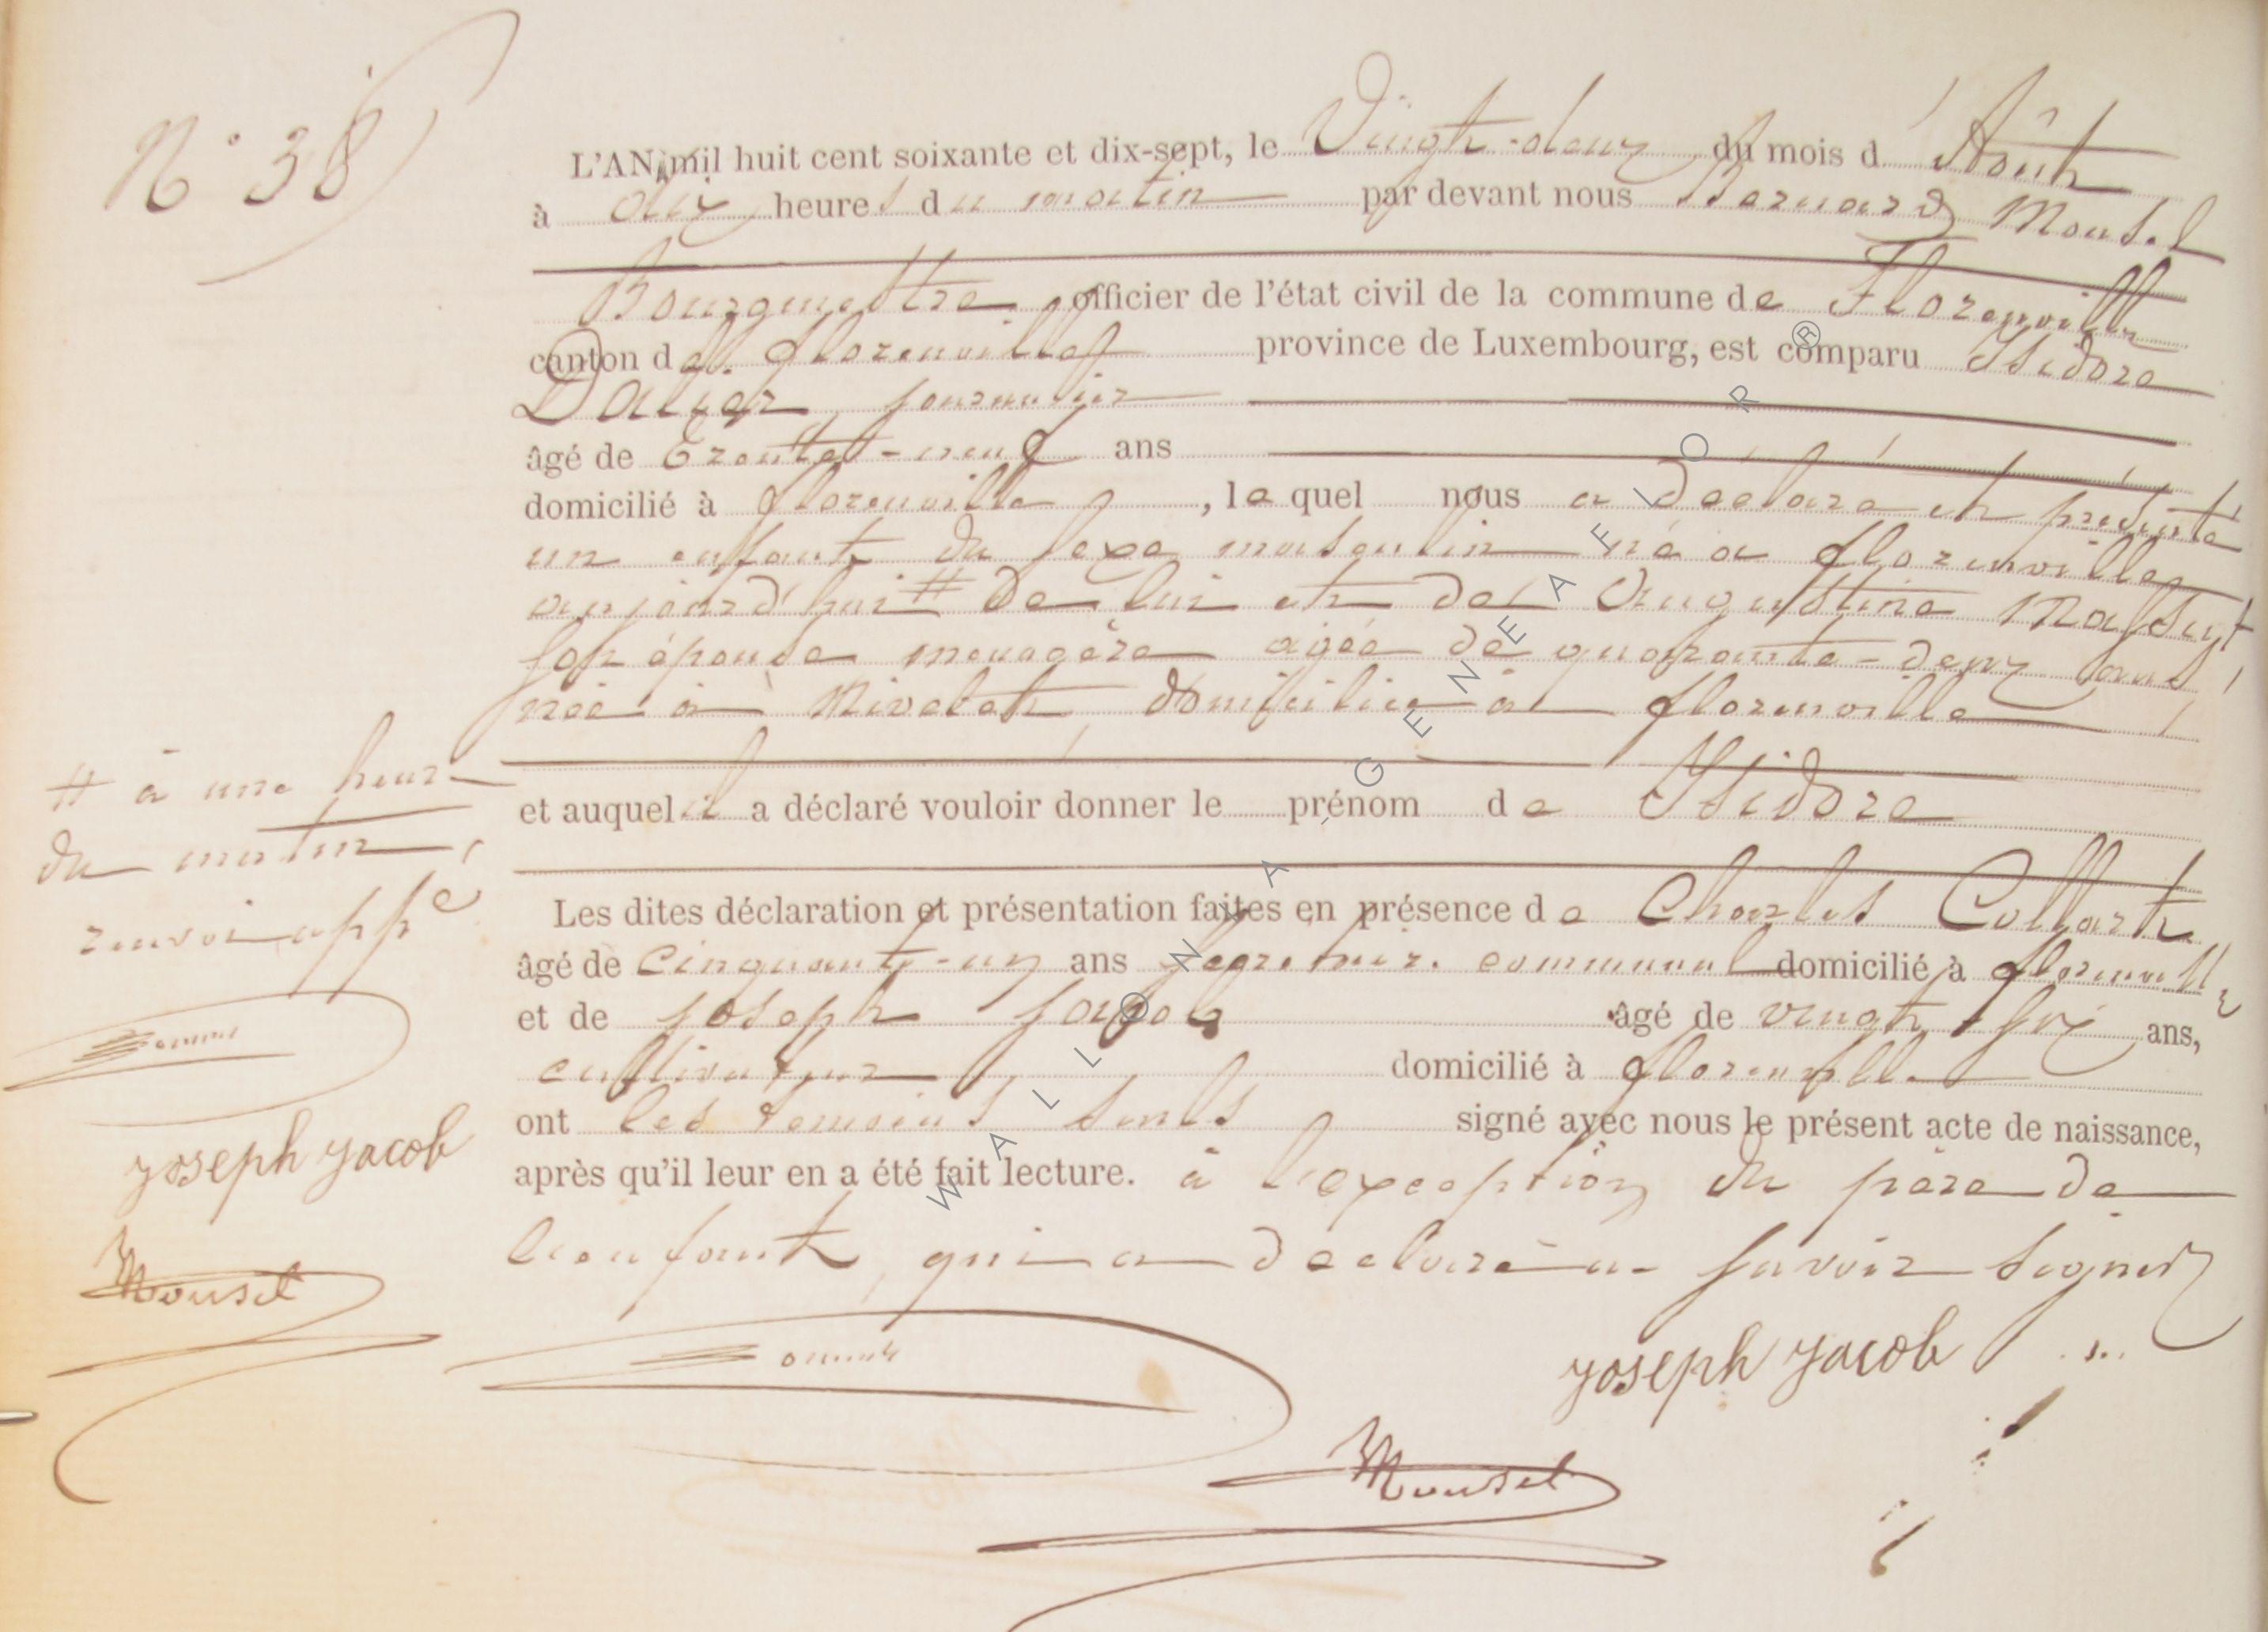 N° 38
L'AN mil huit cent soixante et dix-sept, le Vingt-deux du mois d'Août
à dix heures du matin par devant nous Bernard Mousel
Bourgmestre officier de l'état civil de la commune de Florenville
canton de Florenville province de Luxembourg, est comparu Isidore
journalier
âgé de trente-neuf ans
domicilié à florenville, lequel nous a déclaré et présenté
un enfant du sexe masculin né à florenville
aujourd'hui # de lui et de Augustine
son épouse menagère agée de quarante-deux ans
née à domiciliée à florenville
# à une heure
du matin,
renvoi appé
et auquel il a déclaré vouloir donner le prénom de Isidore
Les dites déclaration et présentation faites en présence de Charles Collart
âgé de cinquante-un ans communal domicilié à florenville
et de joseph jacob âgé de vingt-six ans,
cultivateur domicilié à florenville
ont les temoins seuls signé avec nous le présent acte de naissance,
après qu'il leur en a été fait lecture. à l'exception du père de
l'enfant, qui a declaré ne savoir signer
joseph jacob
Mousel
joseph jacob
Mousel
WALLONIA - GENEAFLOR ®